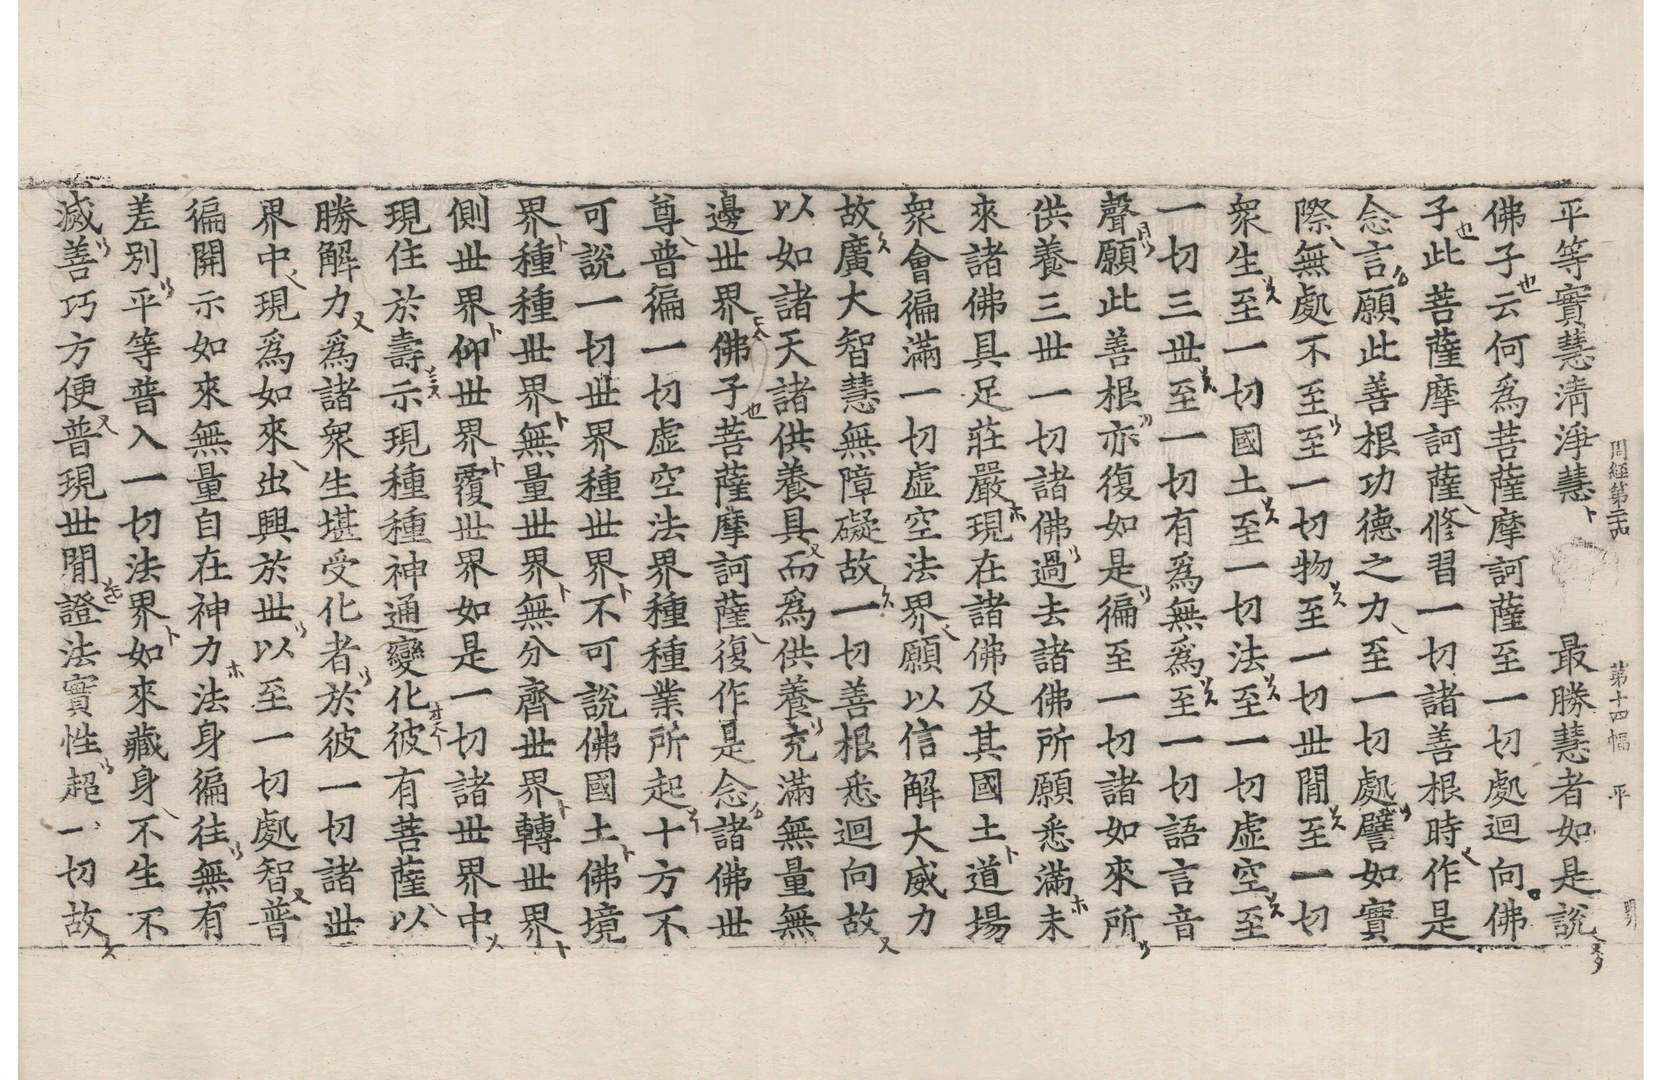 周經第二十四 第十四幅 平
平等實慧清淨慧 最勝慧者如是說
佛子云何爲菩薩摩訶薩至一切處迴向佛
子此菩薩摩訶薩修習一切諸善根時作是
念言願此善根功德之力至一切處譬如實
際無處不至至一切物至一切世間至一切
衆生至一切國土至一切法至一切虛空至
一切三世至一切有爲無爲至一切語言音
聲願此善根亦復如是徧至一切諸如來所
供養三世一切諸佛過去諸佛所願悉滿未
來諸佛具足莊嚴現在諸佛及其國土道場
衆會徧滿一切虛空法界願以信解大威力
故廣大智慧無障礙故一切善根悉迴向故
以如諸天諸供養具而爲供養充滿無量無
邊世界佛子菩薩摩訶薩復作是念諸佛世
尊普徧一切虛空法界種種業所起十方不
可說一切世界種世界不可說佛國土佛境
界種種世界無量世界無分齊世界轉世界
側世界仰世界覆世界如是一切諸世界中
現住於壽示現種種神通變化彼有菩薩以
勝解力爲諸衆生堪受化者於彼一切諸世
界中現爲如來出興於世以至一切處智普
徧開示如來無量自在神力法身徧往無有
差別平等普入一切法界如來藏身不生不
滅善巧方便普現世間證法實性超一切故